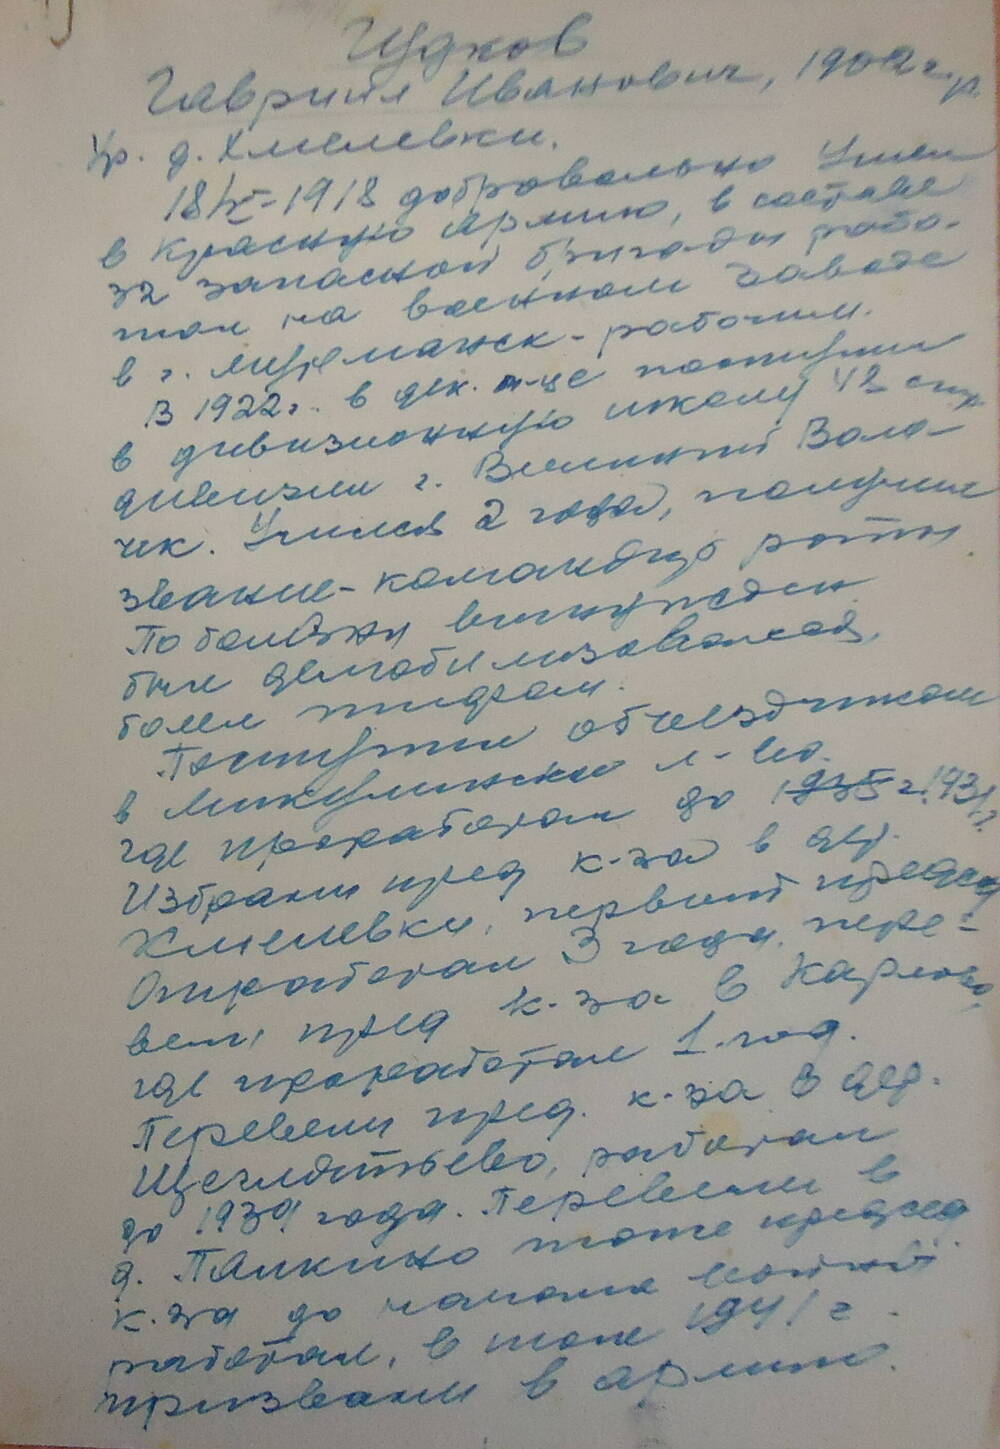 Гудков
Гавриил Иванович, 1902 г.р.
Ур. д. Хмелевки.
18/IX-1918 добровольно ушел
в Красную Армию, в составе
32 запасной бригады рабо-
тал на военном заводе
в г. Мурманск - рабочим.
В 1922 г. в дек. м-це поступил
в дивизионную школу 42 стр
дивизии г. Вышний Воло-
чек. Учился 2 года, получил
звание - командир роты
По болезни вынужден
был демобилизоваться,
болел тифом.
Поступил объездчиком
в Микулинско л-во.
где проработал до 1935 г. 1931 г.
Избрали пред к-за в дер.
Хмелевки, первый председ
Отработал 3 года, пере-
вели пред к-за в Карпово,
где проработал 1 год.
Перевели пред. к-за в дер.
Щеглятьево, работал
до 1939 года. Перевели в
д. Палкино тоже председ
к-за до начала войны
работал, в июле 1941 г.
призвали в армию.